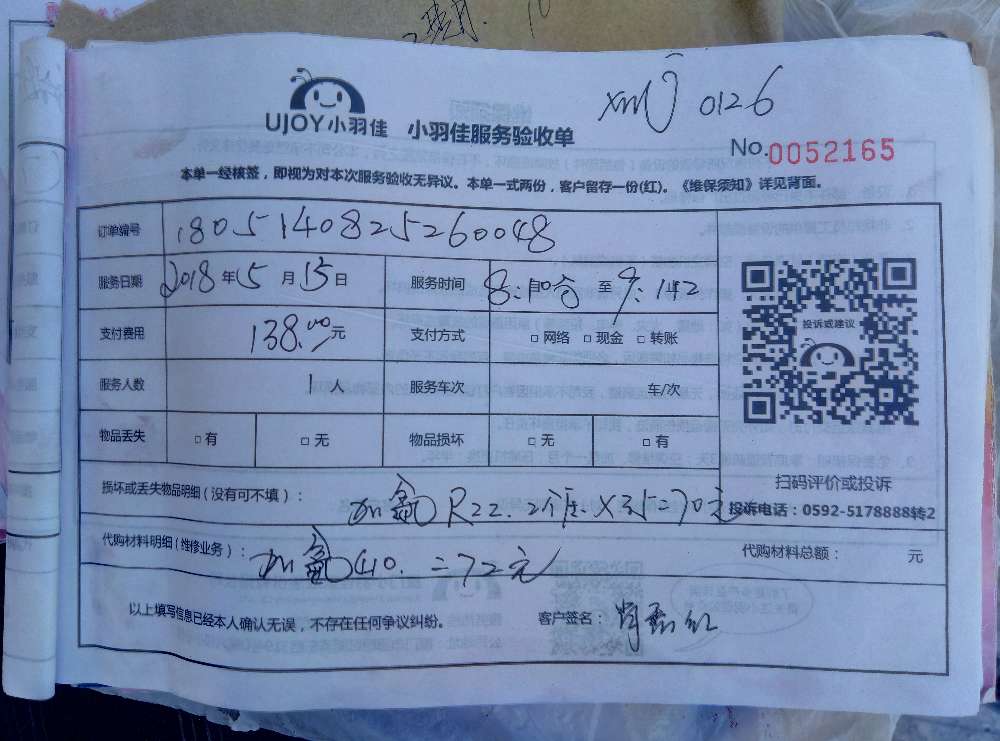 xmU 0126
UJOY小羽佳 小羽佳服务验收单
No.0052165
本单一经核签，即视为对本次服务验收无异议。本单一式两份，客户留存一份(红)。《维保须知》详见背面。
订单编号 1805140825260048
服务日期 2018年5月15日 服务时间 至
支付费用 138.00元 支付方式 □网络 □现金 □转账
投诉或建议
服务人数 1人 服务车次 车/次
物品丢失 □有 □无 物品损坏 □无 □有
扫码评价或投诉
损坏或丢失物品明细(没有可不填)： 加氟R22. 2个 X35=70元
投诉电话：0592-5178888转2
代购材料明细(维修业务)： 加氟410. =72元
代购材料总额： 元
以上填写信息已经本人确认无误，不存在任何争议纠纷。 客户签名：